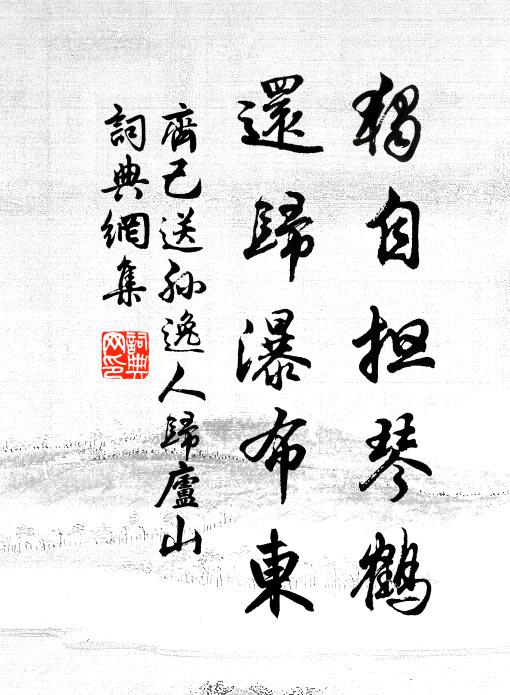 獨自担琴鶴
還歸瀑布東
齊己送孙逸人歸廬山
詞典網集
詞典网印